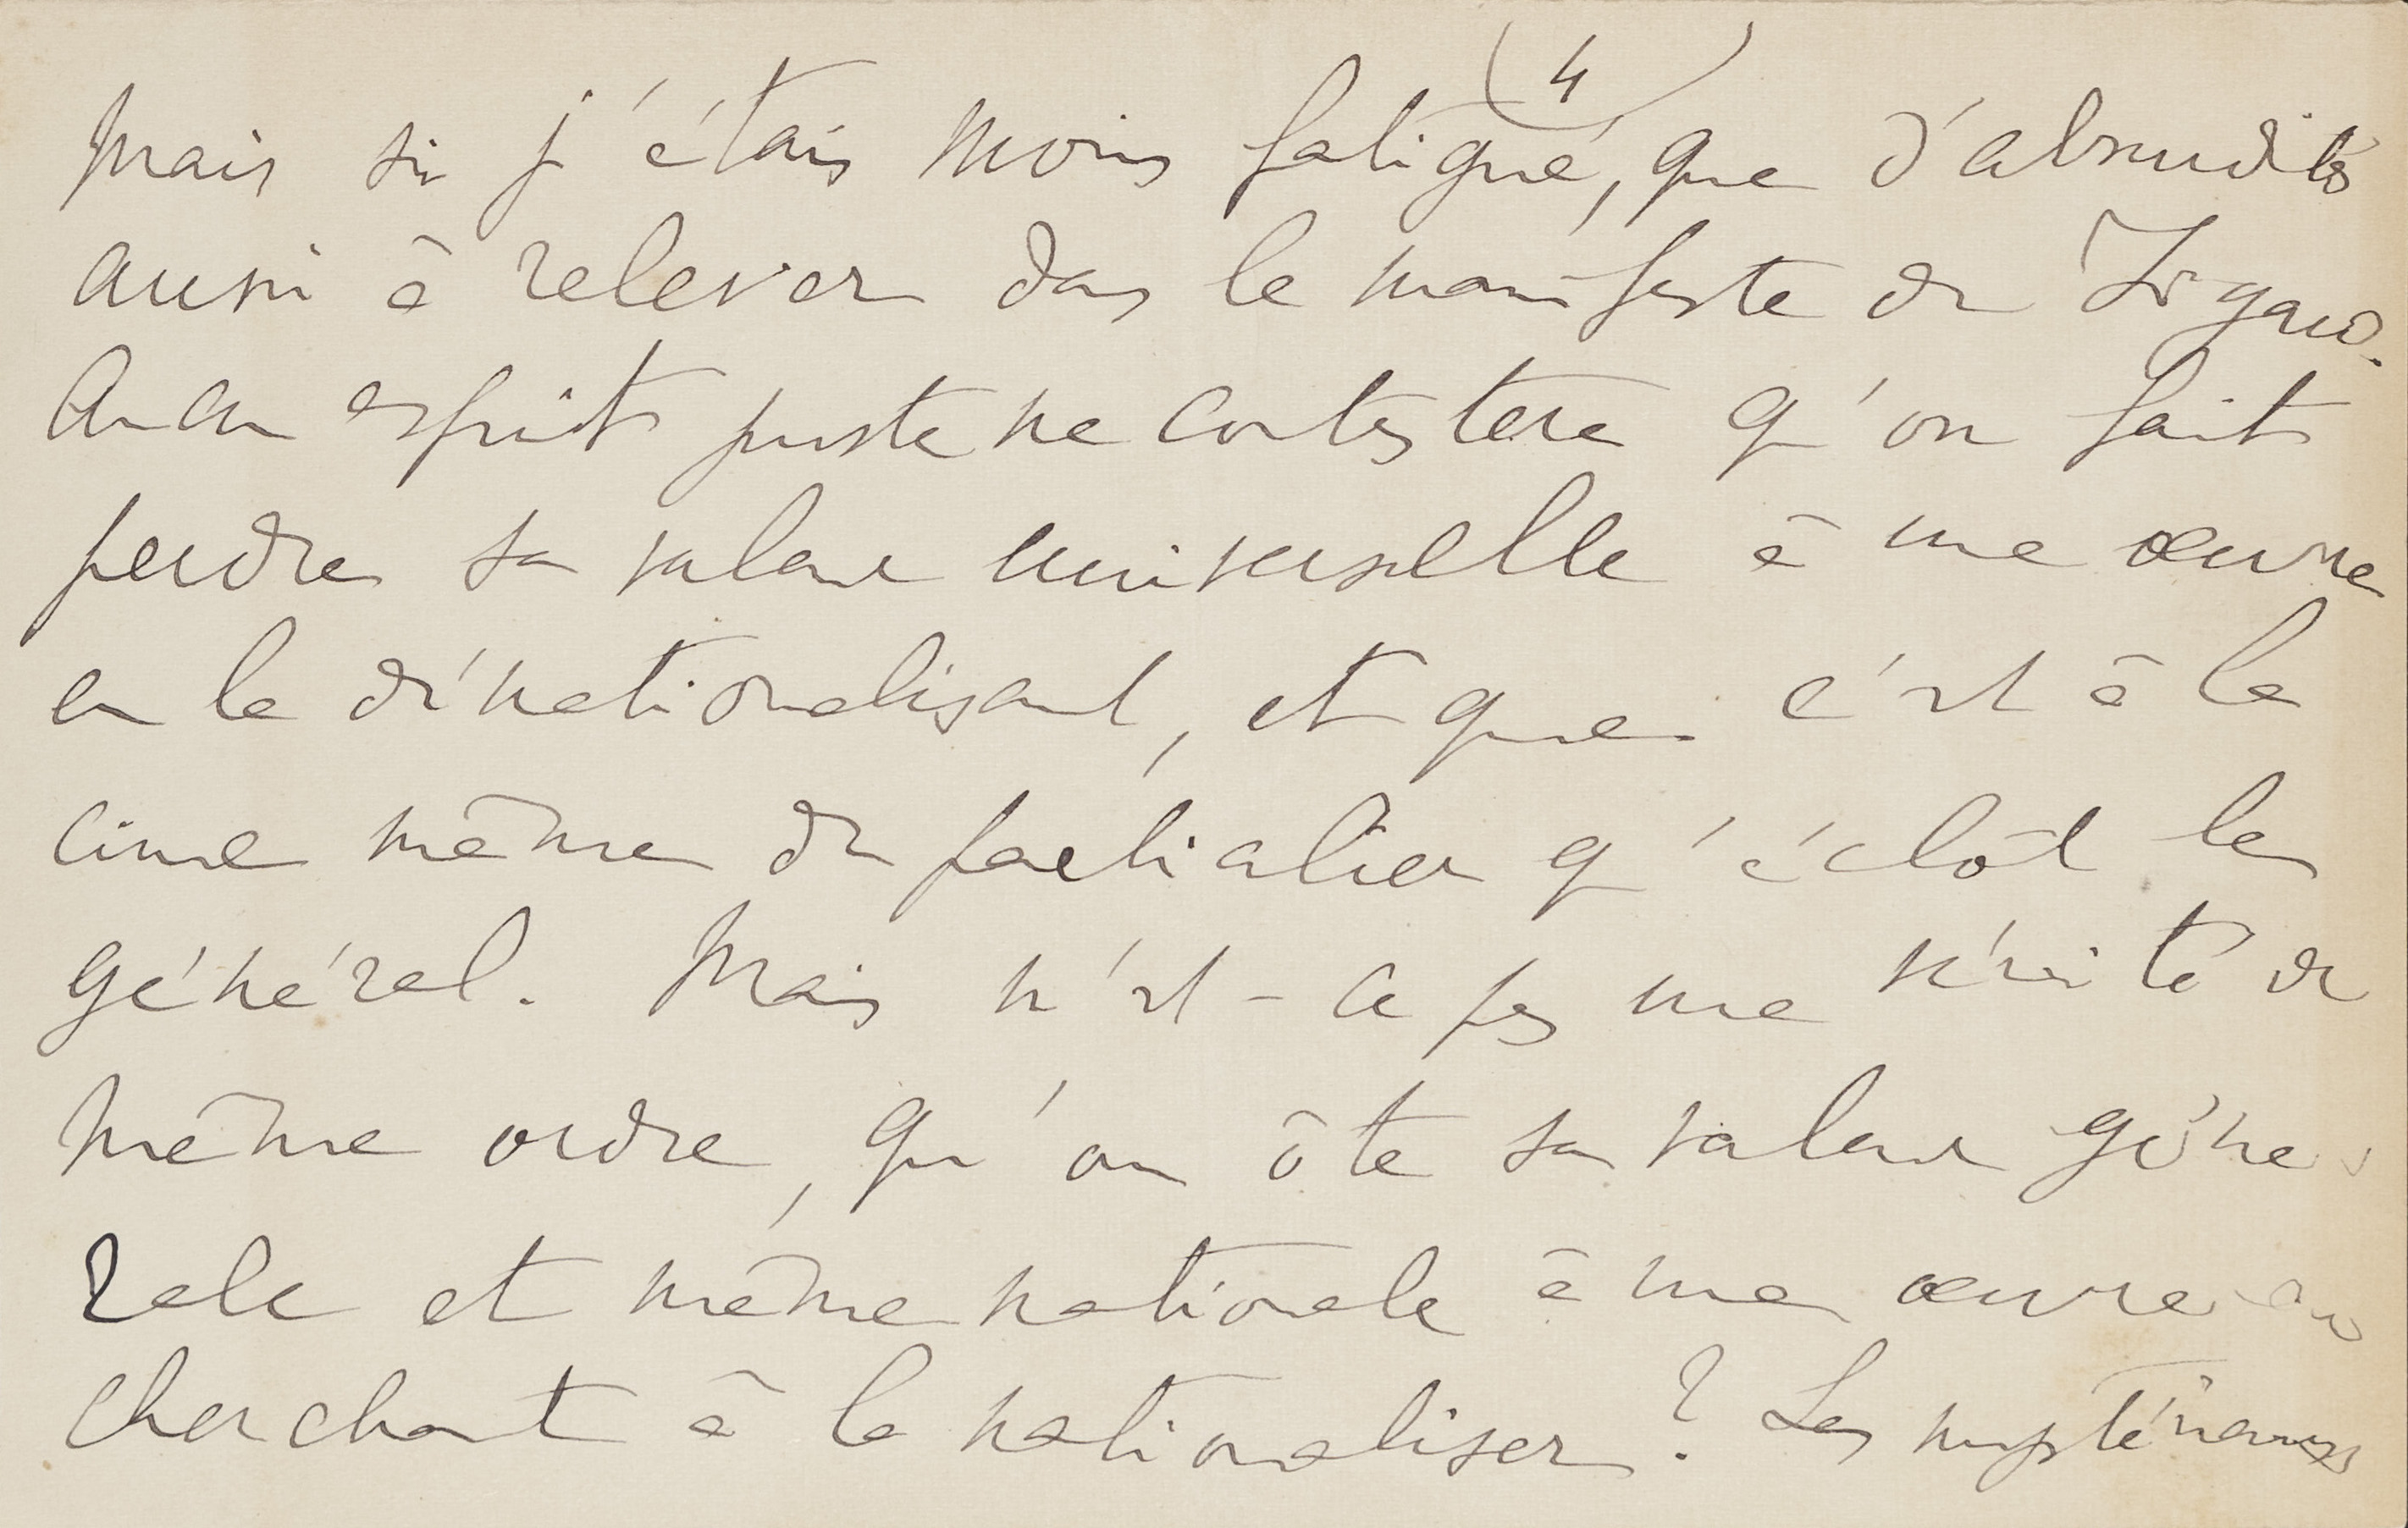 4
Mais si j'étais moins fatigué, que d'absurdités
aussi à relever dans le manifeste du Figaro.
Aucun esprit juste ne contestera qu'on fait
perdre sa valeur universelle à une œuvre
en la dénationalisant, et que c'est à la
cime même du particulier qu'éclôt le
général. Mais n'est-ce pas une vérité de
même ordre, qu'on ôte sa valeur géné-
rale et même nationale à une œuvre en
cherchant à la nationaliser ? Les mystérieuses